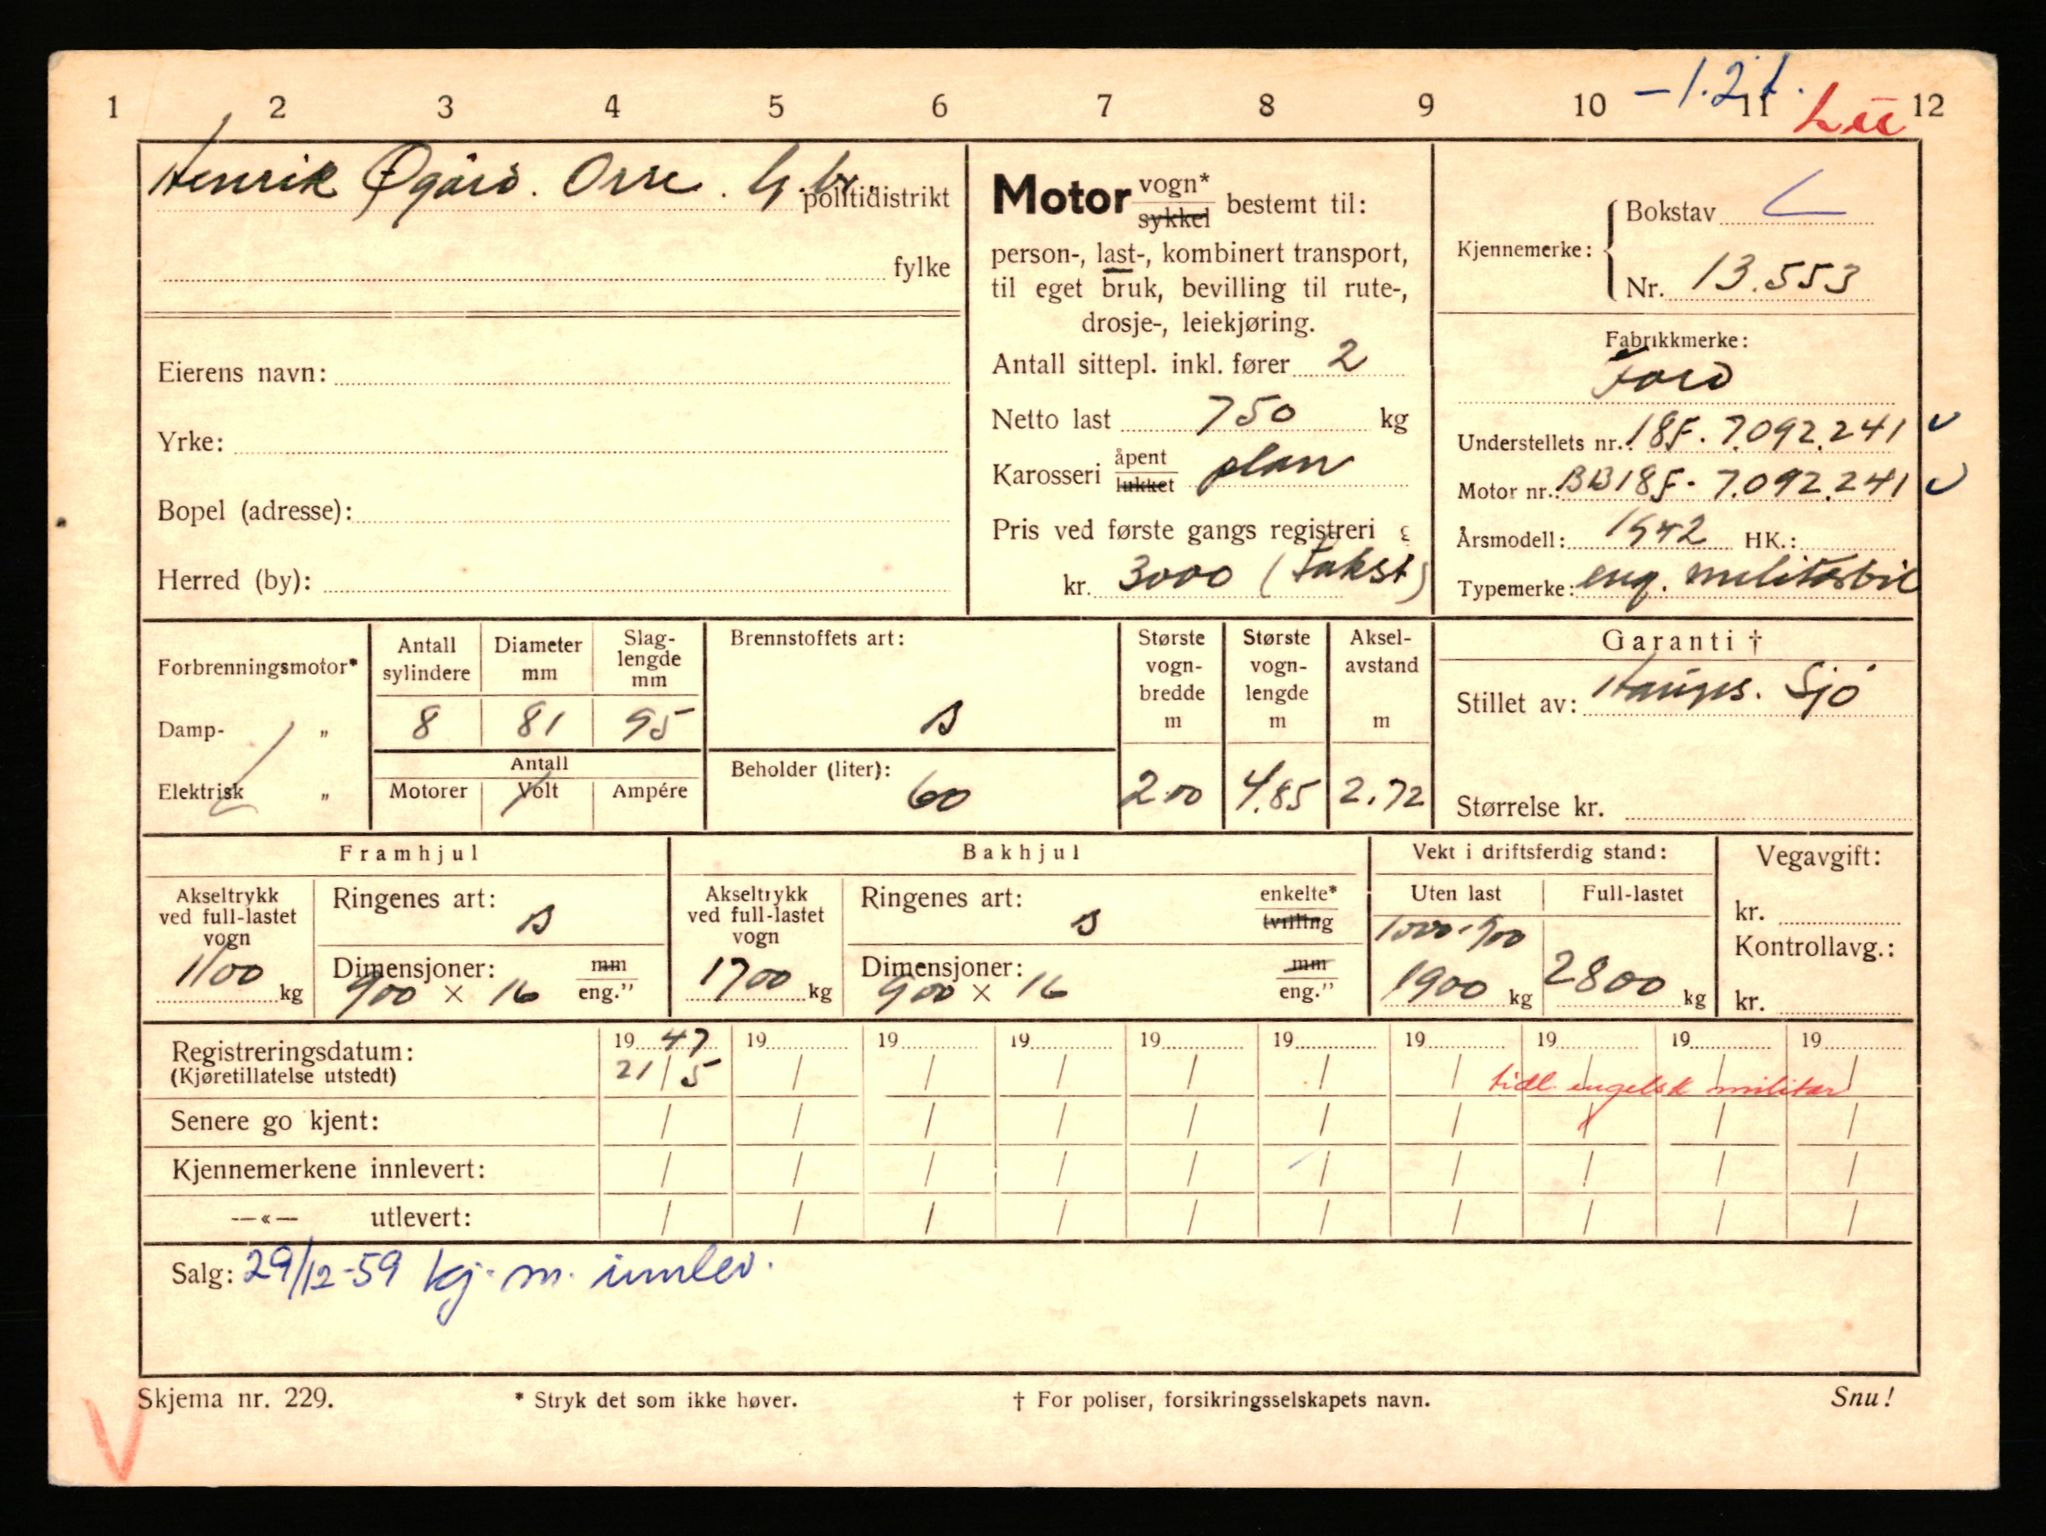 1 2 3 4 5 6 7 8 9 10 11 12
-1.2 t.
Henrik Øgård. Orre. G.br. politidistrikt
fylke
Eierens navn:
Yrke:
Bopel (adresse):
Herred (by):
Motor vogn* sykkel bestemt til:
person-, last-, kombinert transport,
til eget bruk, bevilling til rute-,
drosje-, leiekjøring.
Antall sittepl. inkl. fører 2
Netto last 750 kg
Karosseri åpent lukket plan
Pris ved første gangs registreri g
kr. 3000 (Takst)
Kjennemerke: Bokstav L
Nr. 13.553
Fabrikkmerke:
Ford
Understellets nr. 18F. 7.092.241
Motor nr.: BB18F- 7.092.241
Årsmodell: 1942 HK.:
Typemerke: eng. militærbil
Forbrenningsmotor*
Damp- „
Elektrisk „
Antall sylindere
8
Diameter mm
81
Slag-lengde mm
95
Antall
Motorer Volt Ampére
Brennstoffets art:
B
Beholder (liter):
60
Største vogn-bredde m
2.00
Største vogn-lengde m
4.85
Aksel-avstand m
2.72
Garanti †
Stillet av: Sjø
Størrelse kr.
Framhjul
Akseltrykk ved full-lastet vogn
1100 kg
Ringenes art:
B
Dimensjoner: mm
900 × 16 eng."
Bakhjul
Akseltrykk ved full-lastet vogn
1700 kg
Ringenes art: enkelte*
B tvilling
Dimensjoner: mm
900 × 16 eng."
Vekt i driftsferdig stand:
Uten last Full-lastet
1000-900
1900 kg 2800 kg
Vegavgift:
kr.
Kontrollavg.:
kr.
Registreringsdatum: 19 47 19 19 19 19 19 19 19 19 19
(Kjøretillatelse utstedt) 21/5 / / / / / / / / /
tidl. engelsk militær
Senere go kjent: / / / / / / / / / /
Kjennemerkene innlevert: / / / / / / / / / /
—«— utlevert: / / / / / / / / / /
Salg: 29/12-59 kj.m. innlev.
Skjema nr. 229. * Stryk det som ikke høver. † For poliser, forsikringsselskapets navn. Snu!
V